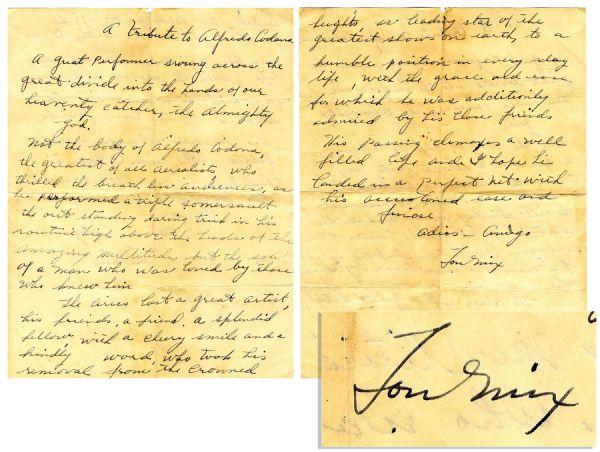 A Tribute to Alfredo Codona
A great Performer swing across the
great divide into the hands of our
heavenly catcher, the Almighty
God.
Not the body of Alfredo Codona,
the greatest of all aerialists, who
thrilled the breathless audiences, as
he performed a triple somersault
the out standing daring trick in his
routine high above the heads of the
amazing multitude but the soul
of a man who was loved by those
who knew him
The circus lost a great artist,
his friends, a friend. a splendid
fellow with a cheery smile and a
kindly word, who took his
removal from the crowned
heights, as leading star of the
greatest shows on earth, to a
humble position in every day
life, with the grace and ease
for which he was additionly
admired by his close friends
His passing closes a well
filled life and I hope he
landed in a perfect net with
his accustomed ease and
finesse
adios - Amigo
Tom Mix
Tom Mix